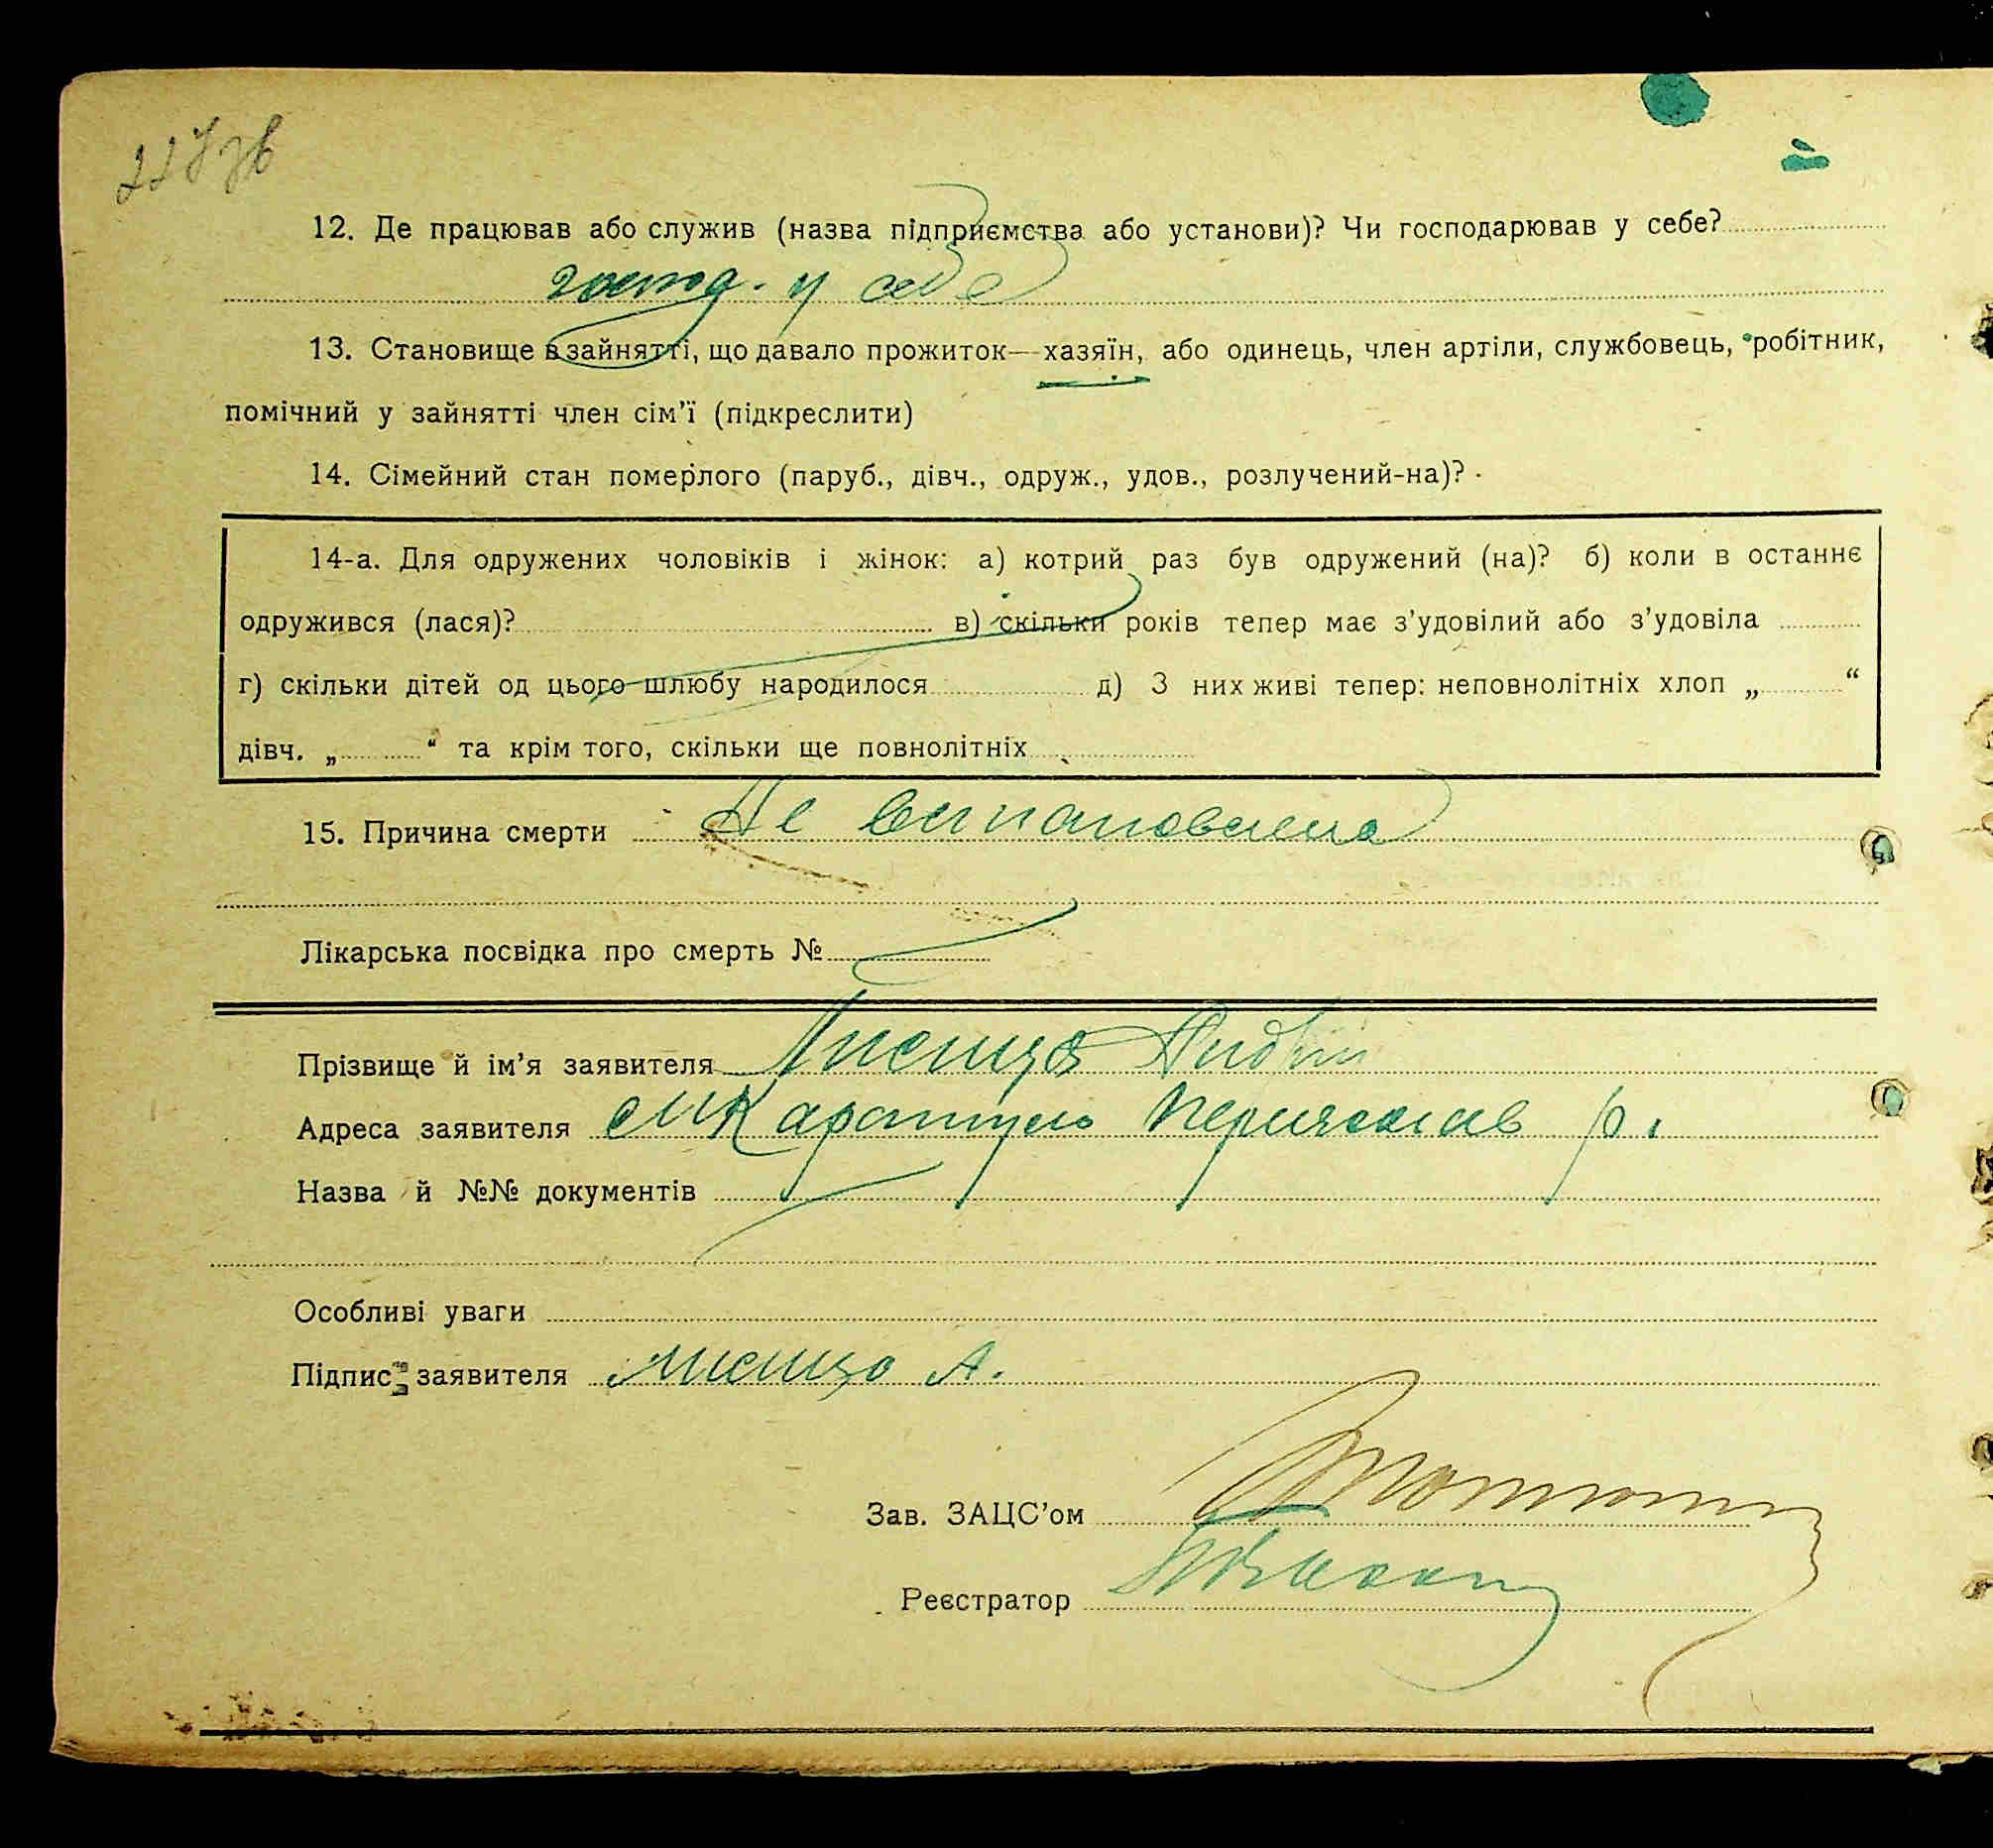 227 зв
12. Де працював або служив (назва підприємства або установи)? Чи господарював у себе?
господ. у себе
13. Становище в зайнятті, що давало прожиток—хазяїн, або одинець, член артіли, службовець, робітник,
помічний у зайнятті член сім’ї (підкреслити)
14. Сімейний стан померлого (паруб., дівч., одруж., удов., розлучений-на)?
14-а. Для одружених чоловіків і жінок: а) котрий раз був одружений (на)? б) коли в останнє
одружився (лася)? в) скільки років тепер має з’удовілий або з’удовіла
г) скільки дітей од цього шлюбу народилося д) З них живі тепер: неповнолітніх хлоп „ “
дівч. „ “ та крім того, скільки ще повнолітніх
15. Причина смерти Не встановлена
Лікарська посвідка про смерть №
Прізвище й ім’я заявителя
Адреса заявителя Каратуль Переяслав р.
Назва й №№ документів
Особливі уваги
Підпис заявителя А.
Зав. ЗАЦС’ом
Реєстратор